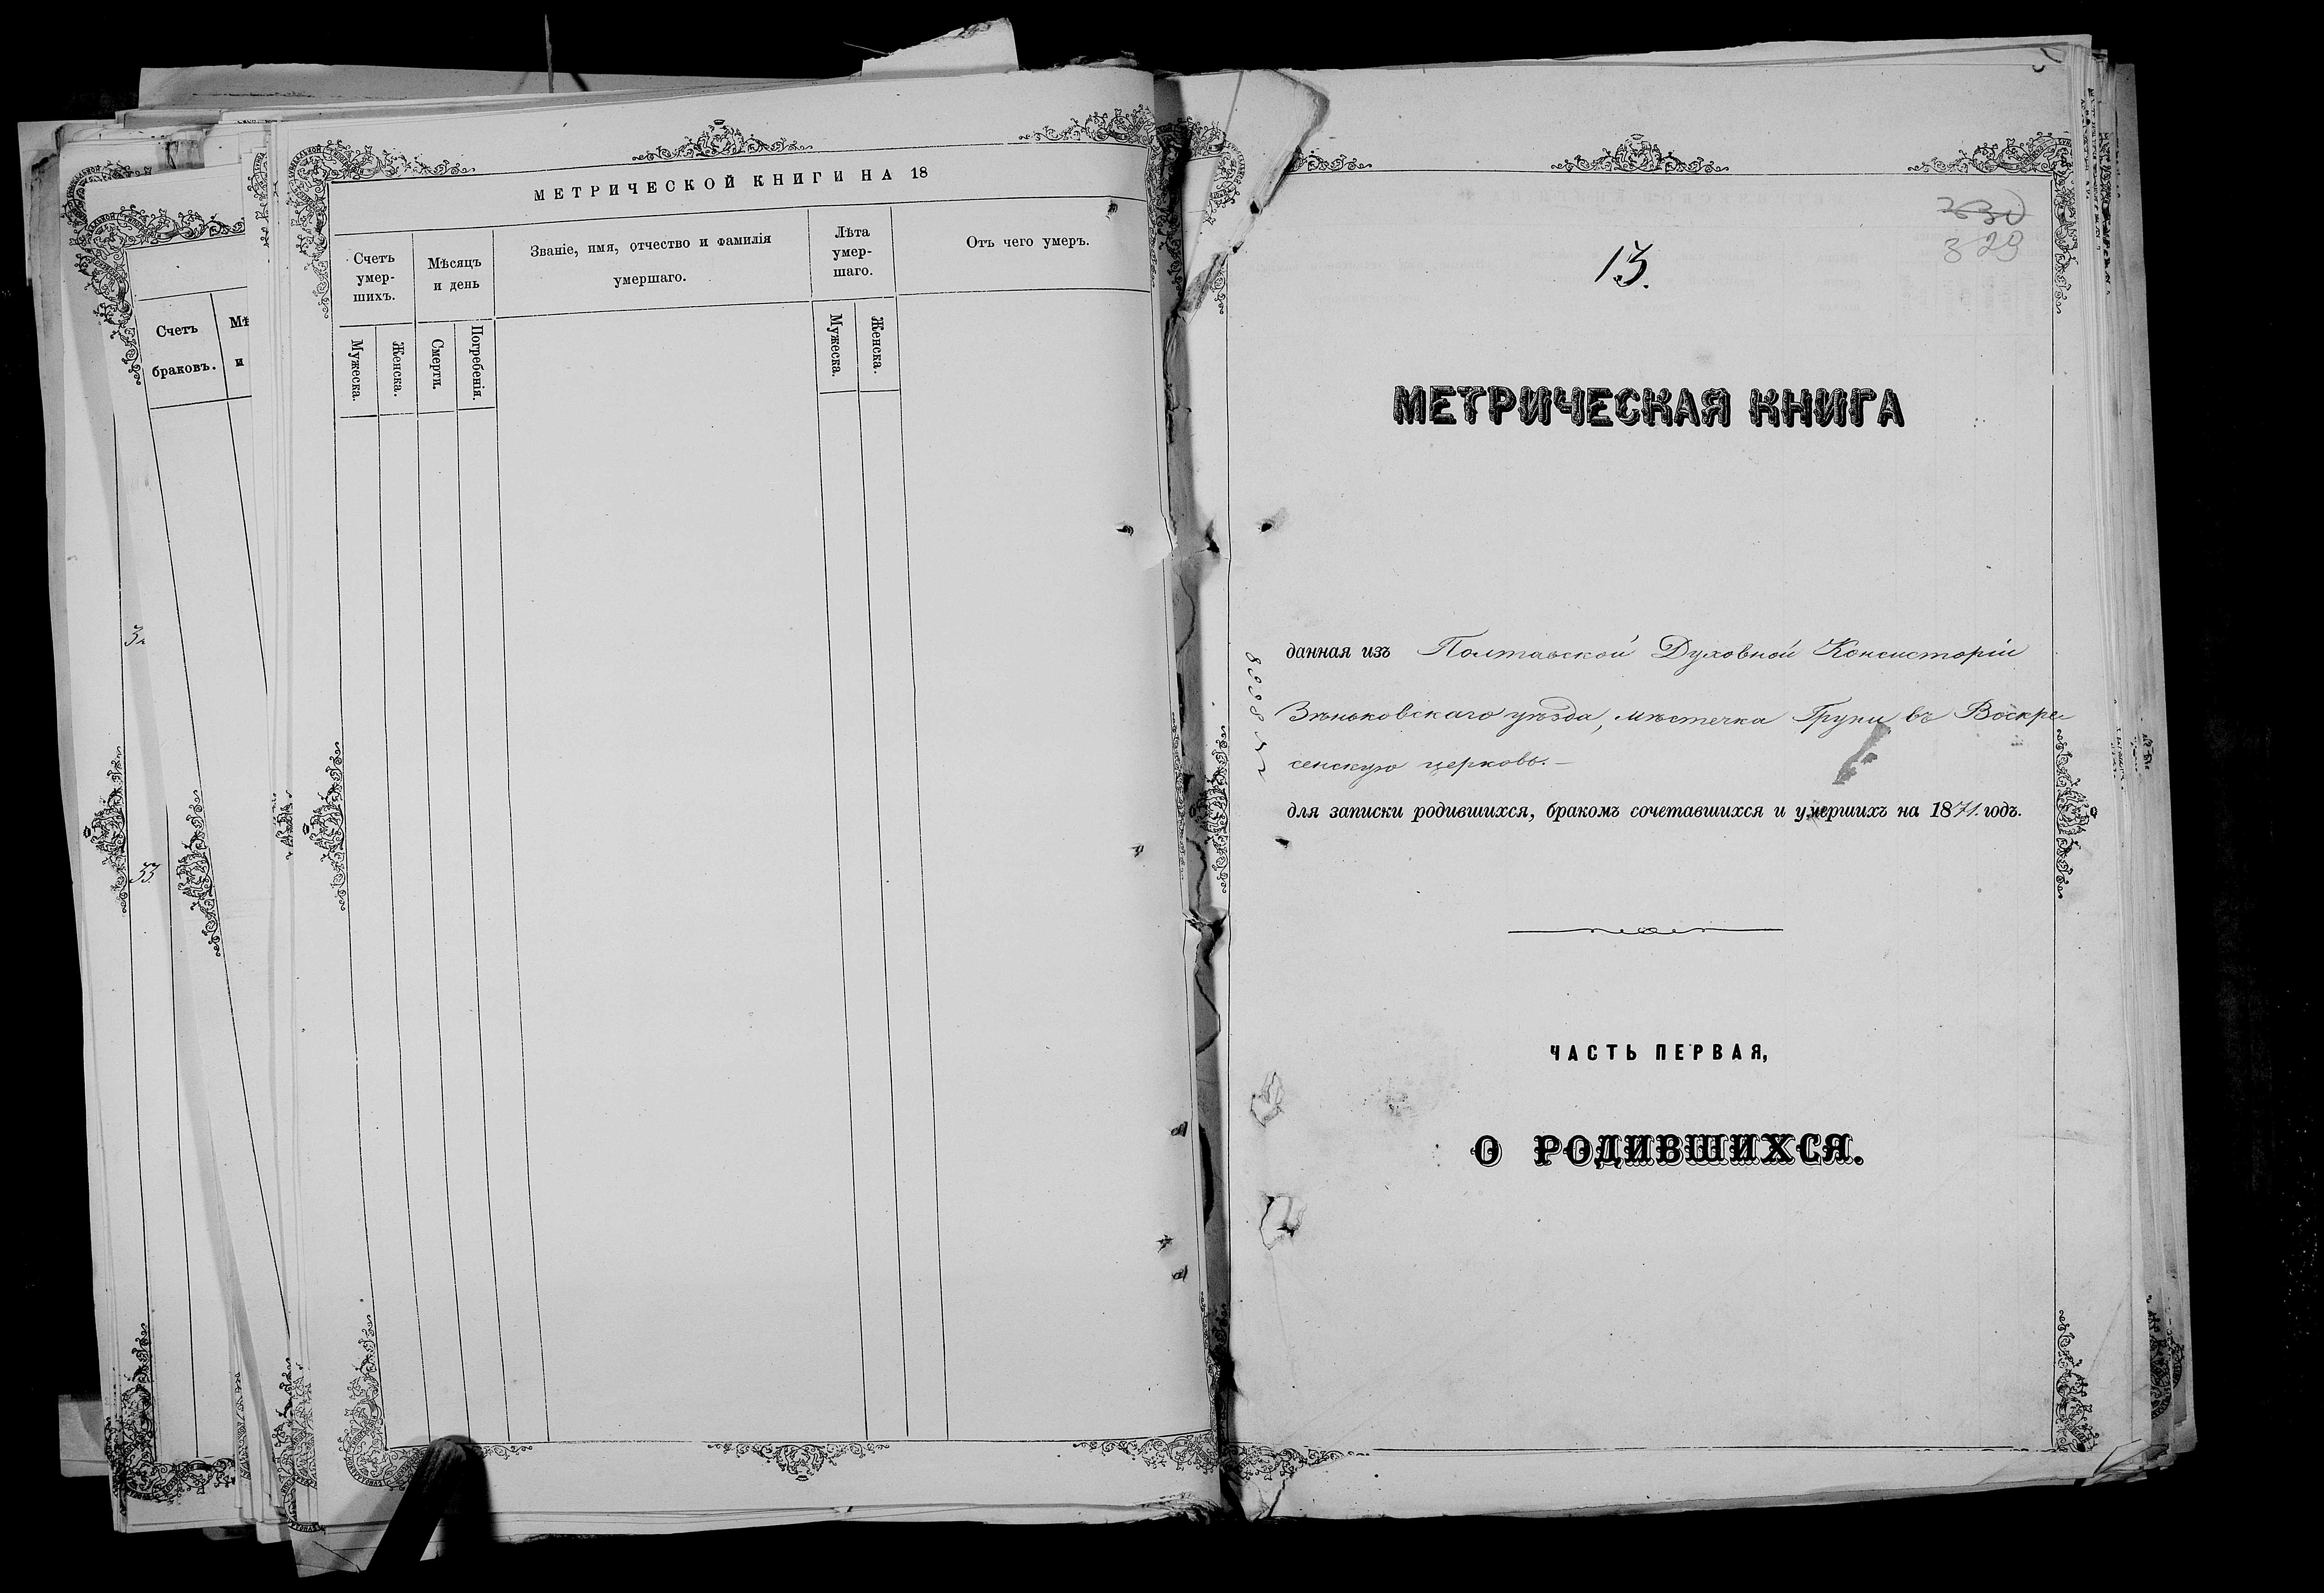 Счетъ
браковъ.
Мѣ
и
32
33.
МЕТРИЧЕСКОЙ КНИГИ НА 18
Счетъ
умер-
шихъ.
Мѣсяцъ
и день
Званіе, имя, отчество и фамилія
умершаго.
Лѣта
умер-
шаго.
Отъ чего умеръ.
Мужеска.
Женска.
Смерти.
Погребенія.
Мужеска.
Женска.
329
13.
МЕТРИЧЕСКАЯ КНИГА
данная изъ Полтавской Духовной Консисторіи
Зѣньковскаго уѣзда, мѣстечка Груни въ Воскре
сенскую церковь.—
для записки родившихся, бракомъ сочетавшихся и умершихъ на 1871. годъ.
ЧАСТЬ ПЕРВАЯ,
О РОДИВШИХСЯ.